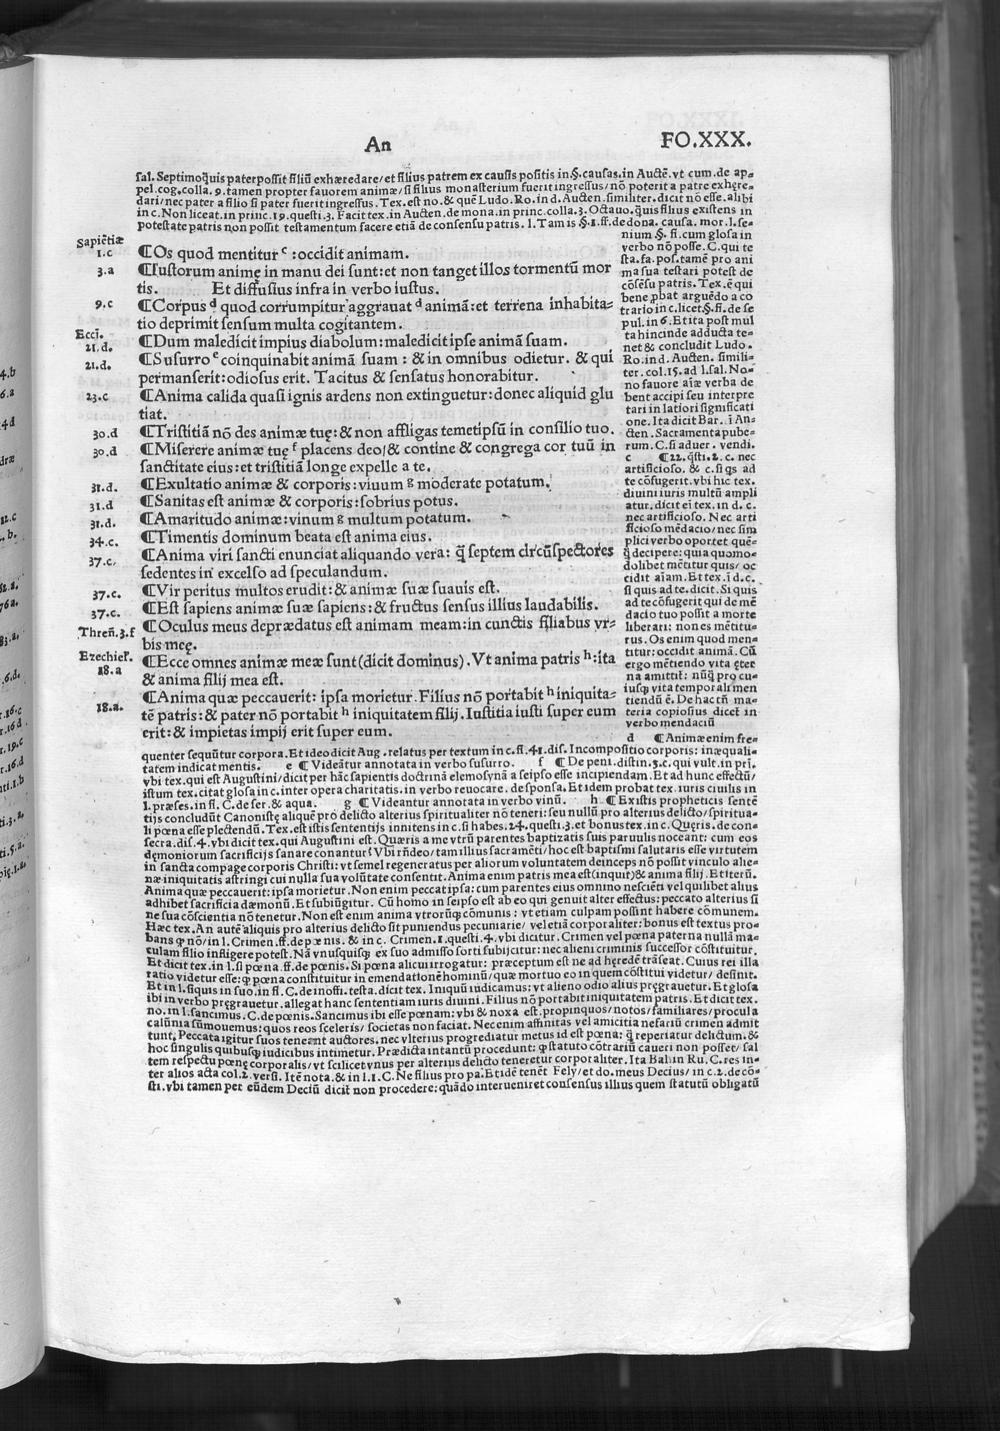 An
FO.XXX.
sal. Septimo q̃uis pater possit filiũ exhæredare/et filius patrem ex causis positis in.§.causas.in Auctẽ.vt cum.de ap-
pel.cog.colla.9.tamen propter fauorem animæ/si filius monasterium fuerit ingressus/nõ poterit a patre exhęre-
dari/nec pater a filio si pater fuerit ingressus. Tex.est no.& quẽ Ludo.Ro.in d.Aucten.similiter.dicit nõ esse.alibi
in c.Non liceat.in princ.19.questi.3. Facit tex.in Aucten.de mona.in princ.colla.3.Octauo.q̃uis filius existens in
potestate patris non possit testamentum facere etiã de consensu patris.l.Tam is §.1.ff.de dona.causa.mor.l.se-
nium.§.fi.cum glosa in
verbo nõ posse.C.qui te
sta.fa.pos.tamẽ pro ani
ma sua testari potest de
cõsẽsu patris.Tex.ẽ qui
bene ꝓbat arguẽdo a co
trario in c.licet.§.fi.de se
pul.in 6.Et ita post mul
ta hincinde adducta te-
net & concludit Ludo.
Ro.in d.Aucten.simili-
ter.col.15.ad l.sal.No-
no fauore aĩæ verba de
bent accipi seu interpre
tari in latiori significati
one.Ita dicit Bar.ĩ An-
ctẽn.Sacramenta pube-
rum.C.si aduer.vendi.
c ¶22.q̃sti.2.c.nec
artificioso.& c.si q̃s ad
te cõfugerit.vbi hic tex.
diuini iuris multũ ampli
atur.dicit eĩ tex.in d.c.
nec artificioso. Nec arti
ficioso mẽdacio/nec sim
plici verbo oportet quẽ-
q̃ decipere:quia quomo-
dolibet mẽtitur quis/oc
cidit aĩam.Et tex.ĩ d.c.
si quis ad te.dicit.Si quis
ad te cõfugerit qui de mẽ
dacio tuo possit a morte
liberari: nones mẽtitu-
rus.Os enim quod men-
titur:occidit animã.Cũ
ergo mẽtiendo vita ęter
na amittit: nũq̃ pro cu-
iusꝗ vita temporali men
tiendũ ẽ. De hac tñ ma-
teria copiosius dicet in
verbo mendaciũ
d ¶Animæ enim fre-
Sapiẽtiæ
1.c
¶Os quod mentitur c:occidit animam.
3.a
¶Iustorum animę in manu dei sunt:et non tanget illos tormentũ mor
tis. Et diffusius infra in verbo iustus.
9.c
¶Corpus d quod corrumpitur aggrauat d animã:et terrena inhabita-
tio deprimit sensum multa cogitantem.
Ecci.
21.d.
¶Dum maledicit impius diabolum:maledicit ipse animã suam.
21.d.
¶Susurro e coinquinabit animã suam : & in omnibus odietur. & qui
permanserit:odiosus erit. Tacitus & sensatus honorabitur.
23.c
¶Anima calida quasi ignis ardens non extinguetur:donec aliquid glu
tiat.
30.d
¶Tristitiã nõ des animæ tuę:& non affligas temetipsũ in consilio tuo.
30.d
¶Miserere animæ tuę f placens deo/& contine & congrega cor tuũ in
sanctitate eius:et tristitiã longe expelle a te.
31.d.
¶Exultatio animæ & corporis:vinum g moderate potatum.
31.d
¶Sanitas est animæ & corporis:sobrius potus.
31.d.
¶Amaritudo animæ:vinum g multum potatum.
34.c.
¶Timentis dominum beata est anima eius.
37.c.
¶Anima viri sancti enunciat aliquando vera: q̃ septem circũspectores
sedentes in excelso ad speculandum.
37.c.
¶Vir peritus multos erudit:& animæ suæ suauis est.
37.c.
¶Est sapiens animæ suæ sapiens:& fructus sensus illius laudabilis.
Threñ.3.f
¶Oculus meus deprædatus est animam meam:in cunctis filiabus vr-
bis meę.
Ezechieł.
18.a
¶Ecce omnes animæ meæ sunt(dicit dominus).Vt anima patris h:ita
& anima filij mea est.
18.a.
¶Anima quæ peccauerit: ipsa morietur. Filius nõ portabit h iniquita-
tẽ patris:& pater nõ portabit h iniquitatem filij. Iustitia iusti super eum
erit:& impietas impij erit super eum.
quenter sequũtur corpora.Et ideo dicit Aug.relatus per textum in c.fi.41.dis.Incompositio corporis: inæquali-
tatem indicat mentis. e ¶Videãtur annotata in verbo susurro. f ¶De peni.distin.3.c.qui vult.in pri.
vbi tex.qui est Augustini/dicit per hãc sapientis doctrinã elemosynã a seipso esse incipiendam.Et ad hunc effectũ/
istum tex.citat glosa in c.inter opera charitatis.in verbo reuocare.de sponsa.Et idem probat tex.iuris ciuilis in
l.præses.in fi.C.de ser.& aqua. g ¶Videantur annotata in verbo vinũ. h ¶Existis propheticis sentẽ
tijs concludũt Canonistę aliquẽ pro delicto alterius spiritualiter nõ teneri:seu nullũ pro alterius delicto/spiritua-
li pœna esse plectendũ.Tex.est istis sententijs innitens in c.si habes.24.questi.3.et bonus tex.in c.Quęris.de con-
secra.dis.4.vbi dicit tex.qui Augustini est.Quæris a me vtrũ parentes baptizatis suis paruulis noceant: cum eos
dęmoniorum sacrificijs sanare conantur? Vbi rñdeo/tam illius sacramẽti/hoc est baptismi salutaris esse virtutem
in sancta compage corporis Christi: vt semel regeneratus per aliorum voluntatem deinceps nõ possit vinculo alie-
næ iniquitatis astringi cui nulla sua volũtate consentit. Anima enim patris mea est(inquit)& anima filij.Et iterũ.
Anima quæ peccauerit:ipsa morietur.Non enim peccat ipsa:cum parentes eius omnino nesciẽti vel quilibet alius
adhibet sacrificia dæmonũ.Et subiũgitur. Cũ homo in seipso est ab eo qui genuit alter effectus:peccato alterius si
ne sua cõscientia nõ tenetur.Non est enim anima vtrorũꝗ cõmunis : vt etiam culpam possint habere cõmunem.
Hæc tex.An autẽ aliquis pro alterius delicto sit puniendus pecuniarie/ vel etiã corporaliter:bonus est textus pro-
bans ꝙ nõ/in l.Crimen.ff.de pœnis. & in c. Crimen.1.questi.4.vbi dicitur.Crimen vel pœna paterna nullã ma-
culam filio infligere potest.Nã vnusquisꝗ ex suo admisso sorti subijcitur:nec alieni criminis successor cõstituitur.
Et dicit tex.in l.si pœna.ff.de pœnis.Si pœna alicui irrogatur: præceptum est ne ad hęredẽ trãseat.Cuius rei illa
ratio videtur esse:ꝙ pœna constituitur in emendationẽ hominũ/quæ mortuo eo in quem cõstitui videtur/ desinit.
Et in l.si quis in suo.in fi.C.de inoffi.testa.dicit tex.Iniquũ iudicamus:vt alieno odio alius pręgrauetur.Et glosa
ibi in verbo pręgrauetur.allegat hanc sententiam iuris diuini.Filius nõ portabit iniquitatem patris.Et dicit tex.
no.in l.sancimus.C.de pœnis.Sancimus ibi esse pœnam:vbi & noxa est.propinquos/notos/familiares/procul a
calũnia sũmouemus:quos reos sceleris/societas non faciat.Nec enim affinitas vel amicitia nefariũ crimen admit
tunt.Peccata igitur suos teneant auctores.nec vlterius progrediatur metus id est pœna: q̃ reperiatur delictum.&
hoc singulis quibusꝗ iudicibus intimetur. Prædicta intantũ procedunt: ꝙ statuto cõtrariũ caueri non posset/ sal
tem respectu pœnę corporalis/vt scilicet vnus per alterius delicto teneretur corporaliter.Ita Bal.in Ru.C.res in-
ter alios acta col.2.versi.Itẽ nota.& in l.1.C.Ne filius pro pa.Et idẽ tenẽt Fely/et do.meus Decius/in c.2.de cõ-
sti.vbi tamen per eũdem Deciũ dicit non procedere:quãdo interueniret consensus illius quem statutũ obligatũ